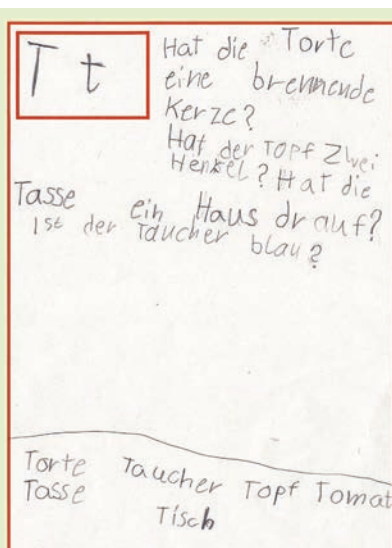 T t
Hat die Torte
eine brennende
Kerze?
Hat der Topf zwei
Henkel? Hat die
Tasse ein Haus drauf?
Ist der Taucher blau?
Torte Taucher Topf Tomat
Tasse
Tisch